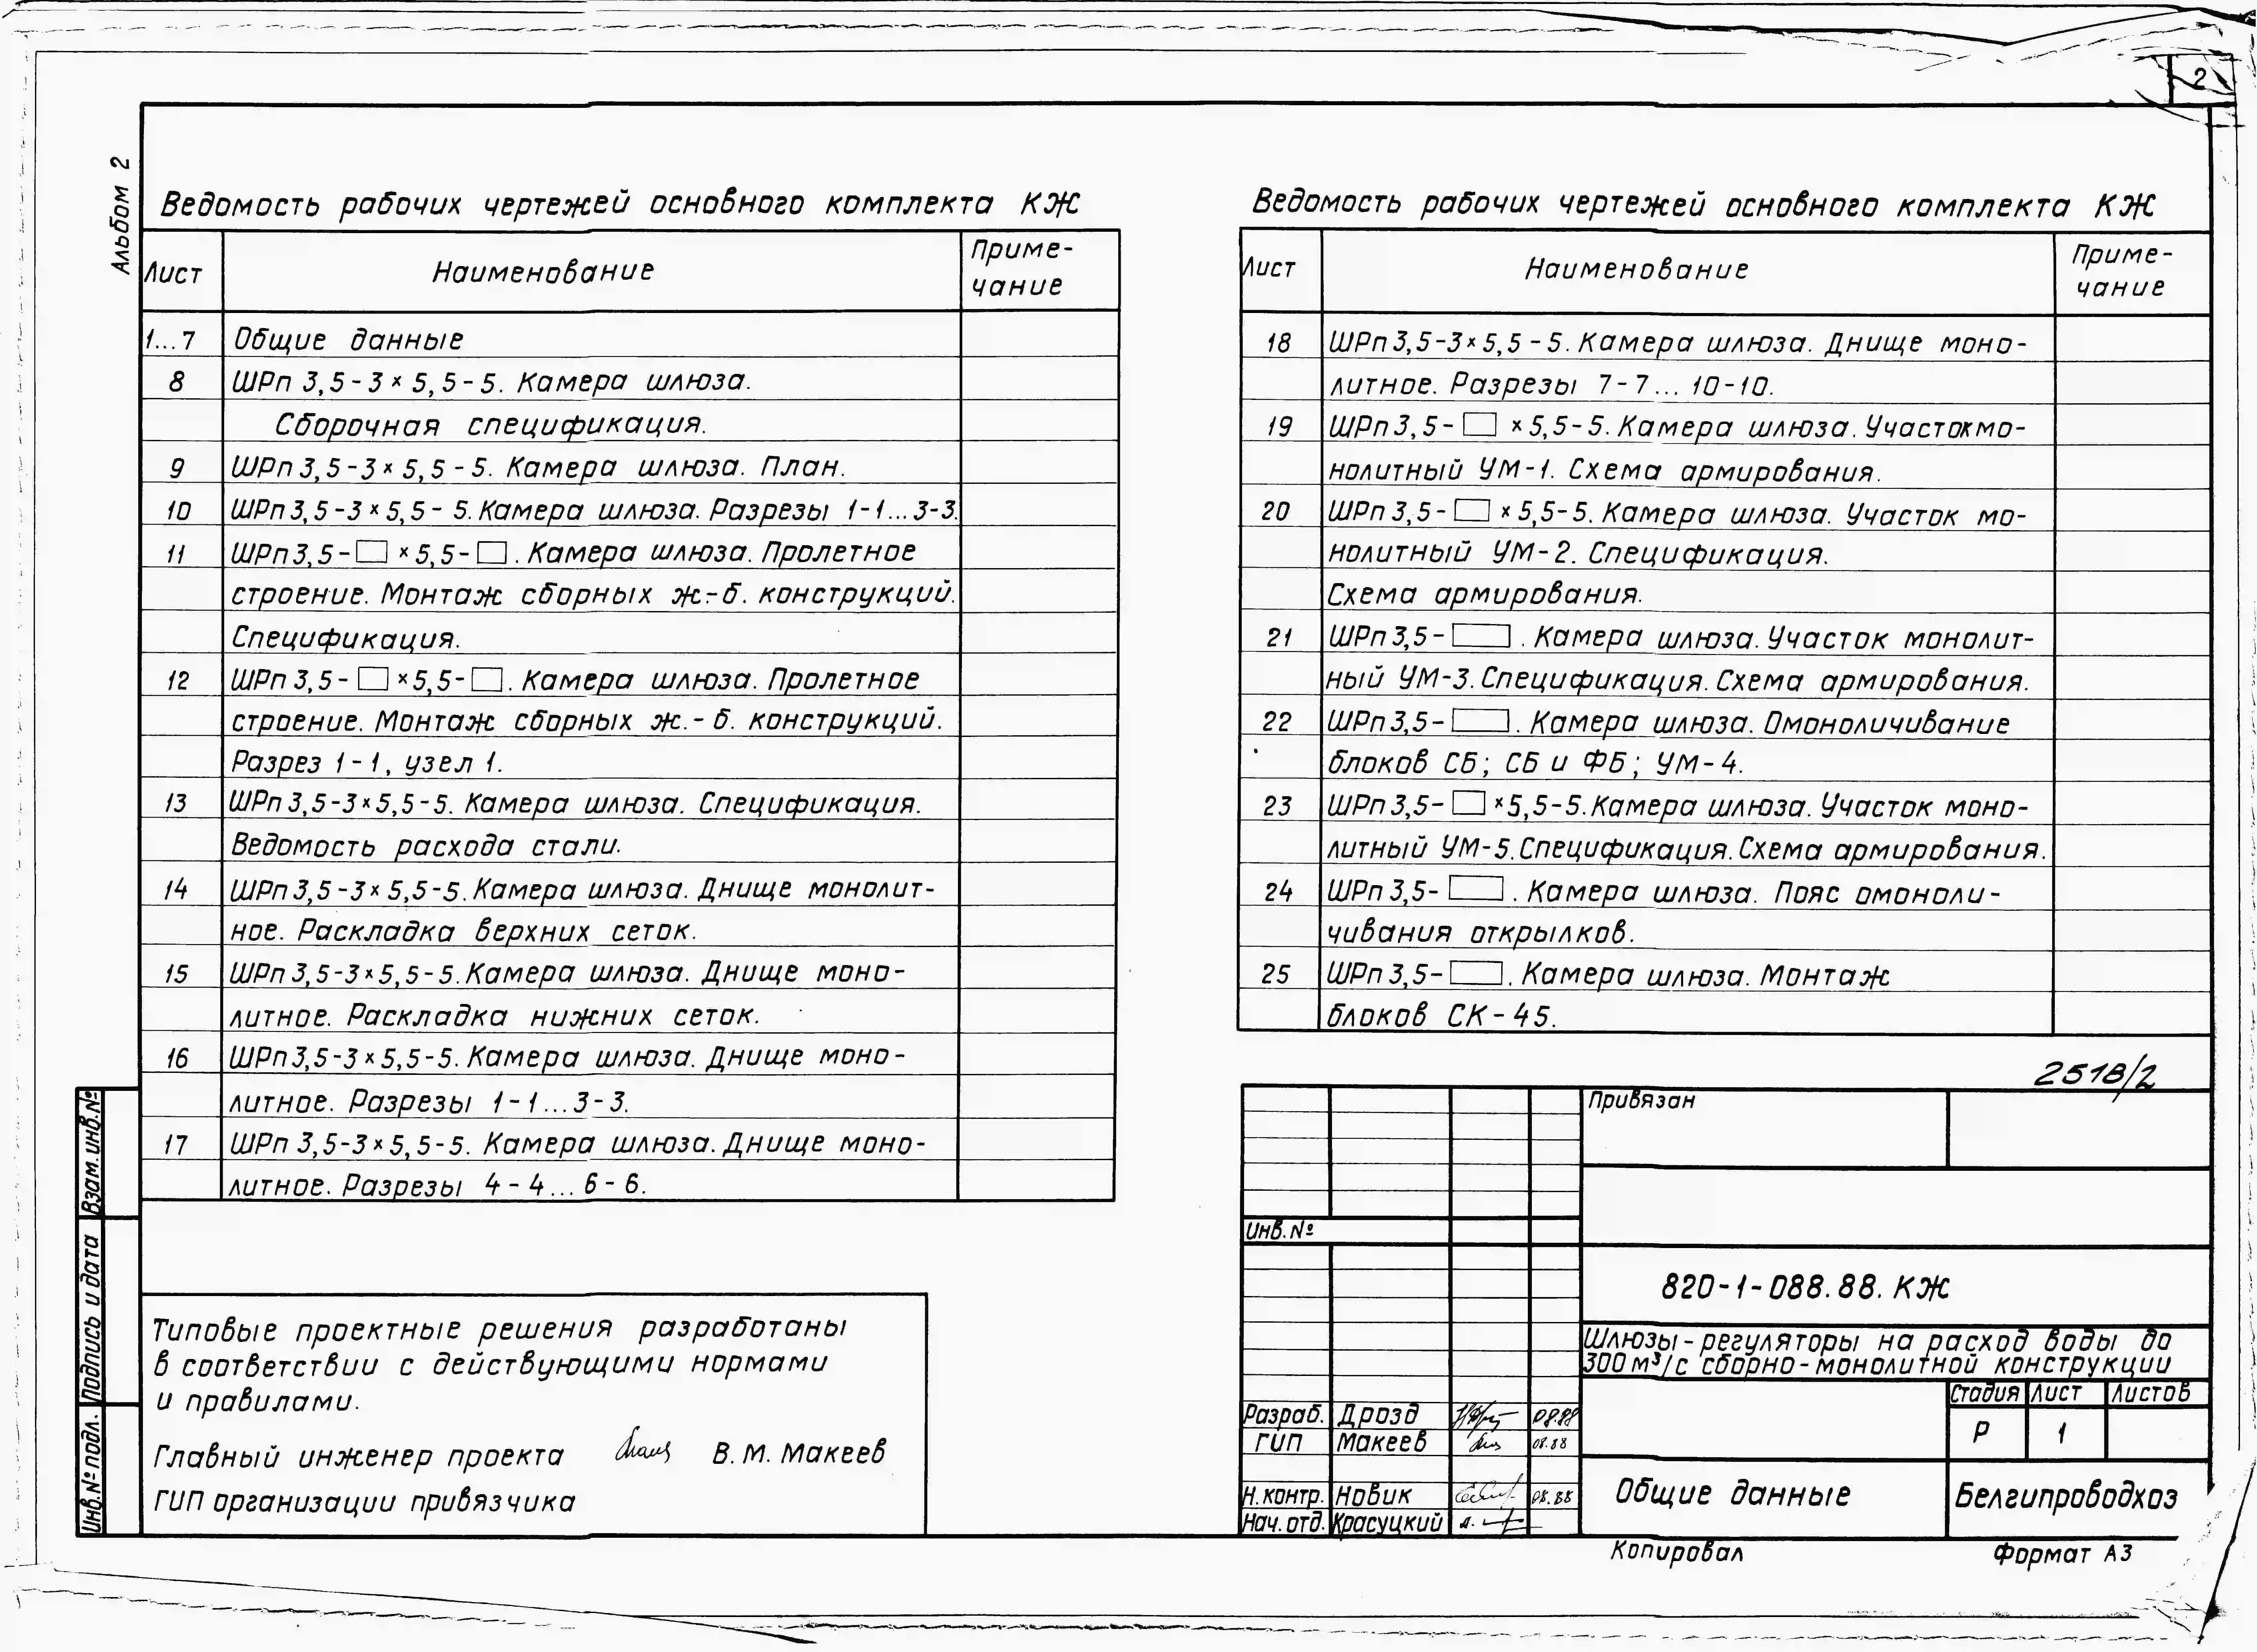 2
Альбом 2
Ведомость рабочих чертежей основного комплекта КЖ
Лист Наименование Приме-
чание
1...7 Общие данные
8 ШРп 3,5-3×5,5-5. Камера шлюза.
Сборочная спецификация.
9 ШРп 3,5-3×5,5-5. Камера шлюза. План.
10 ШРп 3,5-3×5,5-5. Камера шлюза. Разрезы 1-1...3-3.
11 ШРп 3,5-□×5,5-□. Камера шлюза. Пролетное
строение. Монтаж сборных ж.-б. конструкций.
Спецификация.
12 ШРп 3,5-□×5,5-□. Камера шлюза. Пролетное
строение. Монтаж сборных ж.-б. конструкций.
Разрез 1-1, узел 1.
13 ШРп 3,5-3×5,5-5. Камера шлюза. Спецификация.
Ведомость расхода стали.
14 ШРп 3,5-3×5,5-5. Камера шлюза. Днище монолит-
ное. Раскладка верхних сеток.
15 ШРп 3,5-3×5,5-5. Камера шлюза. Днище моно-
литное. Раскладка нижних сеток.
16 ШРп 3,5-3×5,5-5. Камера шлюза. Днище моно-
литное. Разрезы 1-1...3-3.
17 ШРп 3,5-3×5,5-5. Камера шлюза. Днище моно-
литное. Разрезы 4-4...6-6.
Ведомость рабочих чертежей основного комплекта КЖ
Лист Наименование Приме-
чание
18 ШРп 3,5-3×5,5-5. Камера шлюза. Днище моно-
литное. Разрезы 7-7...10-10.
19 ШРп 3,5-□×5,5-5. Камера шлюза. Участок мо-
нолитный УМ-1. Схема армирования.
20 ШРп 3,5-□×5,5-5. Камера шлюза. Участок мо-
нолитный УМ-2. Спецификация.
Схема армирования.
21 ШРп 3,5-□. Камера шлюза. Участок монолит-
ный УМ-3. Спецификация. Схема армирования.
22 ШРп 3,5-□. Камера шлюза. Омоноличивание
блоков СБ; СБ и ФБ; УМ-4.
23 ШРп 3,5-□×5,5-5. Камера шлюза. Участок моно-
литный УМ-5. Спецификация. Схема армирования.
24 ШРп 3,5-□. Камера шлюза. Пояс омоноли-
чивания открылков.
25 ШРп 3,5-□. Камера шлюза. Монтаж
блоков СК-45.
2518/2
Типовые проектные решения разработаны
в соответствии с действующими нормами
и правилами.
Главный инженер проекта В.М. Макеев
ГИП организации привязчика
Взам. инв. №
Подпись и дата
Инв. № подл.
Привязан
Инв. №
820-1-088.88. КЖ
Шлюзы-регуляторы на расход воды до
300 м³/с сборно-монолитной конструкции
Стадия Лист Листов
Р 1
Разраб. Дрозд 08.88
ГИП Макеев 08.88
Н. контр. Новик 08.88
Нач. отд. Красуцкий
Общие данные
Белгипроводхоз
Копировал
Формат А3